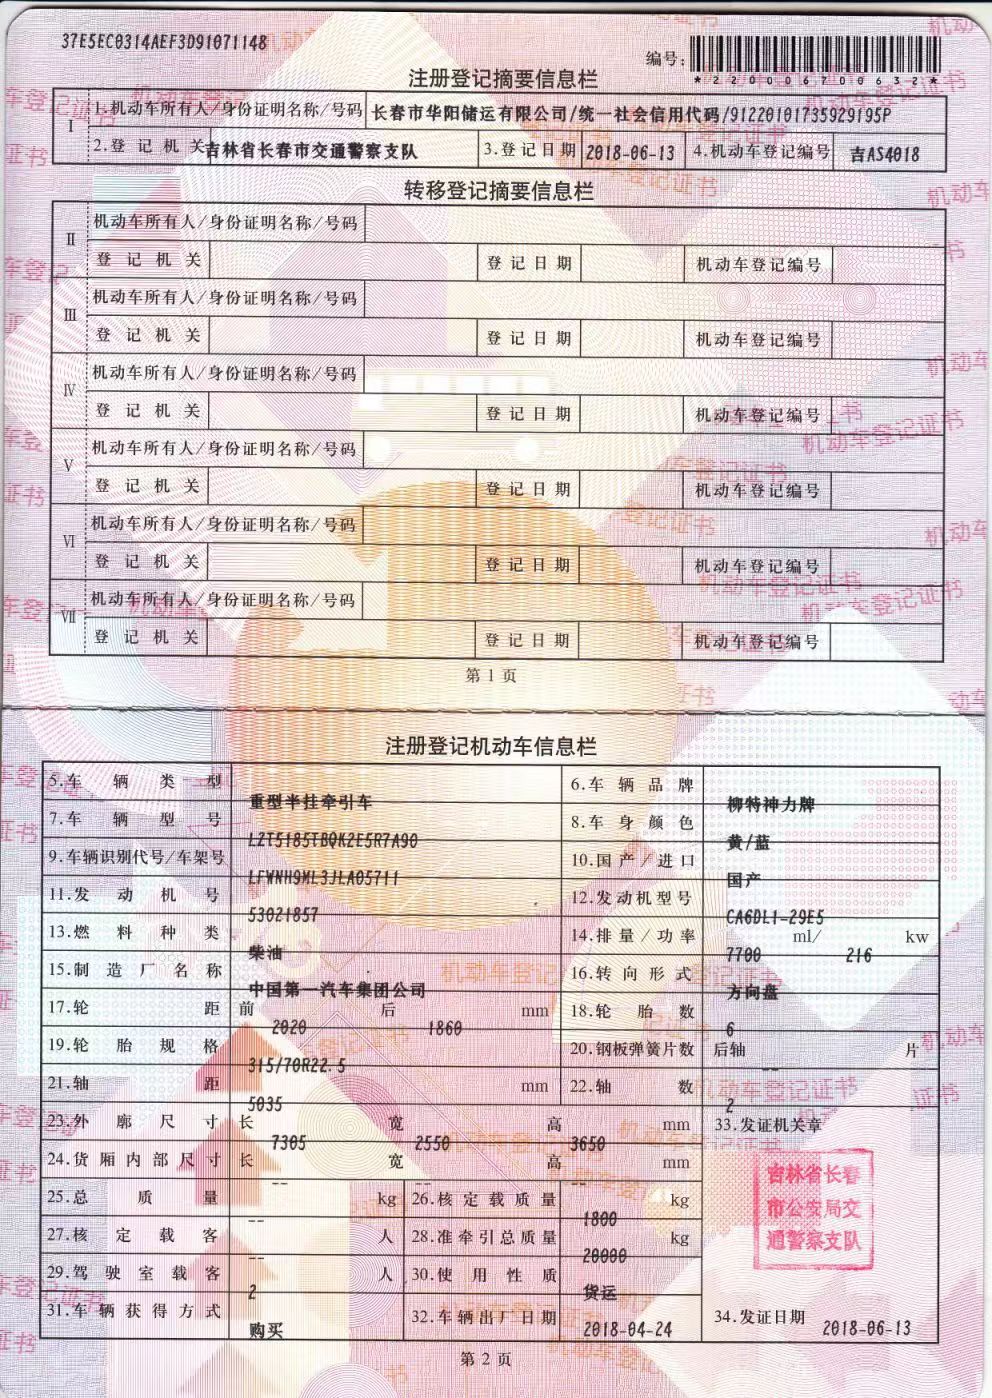 37E5EC0314AEF3D91071148
编号:
*220006700632*
注册登记摘要信息栏
I 1.机动车所有人/身份证明名称/号码 长春市华阳储运有限公司/统一社会信用代码/91220101735929195P
2.登记机关 吉林省长春市交通警察支队 3.登记日期 2018-06-13 4.机动车登记编号 吉AS4018
转移登记摘要信息栏
II 机动车所有人/身份证明名称/号码
登记机关 登记日期 机动车登记编号
III 机动车所有人/身份证明名称/号码
登记机关 登记日期 机动车登记编号
IV 机动车所有人/身份证明名称/号码
登记机关 登记日期 机动车登记编号
V 机动车所有人/身份证明名称/号码
登记机关 登记日期 机动车登记编号
VI 机动车所有人/身份证明名称/号码
登记机关 登记日期 机动车登记编号
VII 机动车所有人/身份证明名称/号码
登记机关 登记日期 机动车登记编号
第 1 页
注册登记机动车信息栏
5.车辆类型 重型半挂牵引车 6.车辆品牌 柳特神力牌
7.车辆型号 LZT5185TBQK2E5R7A90 8.车身颜色 黄/蓝
9.车辆识别代号/车架号 LFWNH9ML3JLA05711 10.国产/进口 国产
11.发动机号 53021857 12.发动机型号 CA6DL1-29E5
13.燃料种类 柴油 14.排量/功率 7700 ml/ 216 kw
15.制造厂名称 中国第一汽车集团公司 16.转向形式 方向盘
17.轮距 前 2020 后 1860 mm 18.轮胎数 6
19.轮胎规格 315/70R22.5 20.钢板弹簧片数 后轴 -- 片
21.轴距 5035 mm 22.轴数 2
23.外廓尺寸 长 7305 宽 2550 高 3650 mm 33.发证机关章
24.货厢内部尺寸 长 -- 宽 -- 高 -- mm
吉林省长春
市公安局交
通警察支队
25.总质量 -- kg 26.核定载质量 1800 kg
27.核定载客 -- 人 28.准牵引总质量 20000 kg
29.驾驶室载客 2 人 30.使用性质 货运
31.车辆获得方式 购买 32.车辆出厂日期 2018-04-24 34.发证日期 2018-06-13
第 2 页